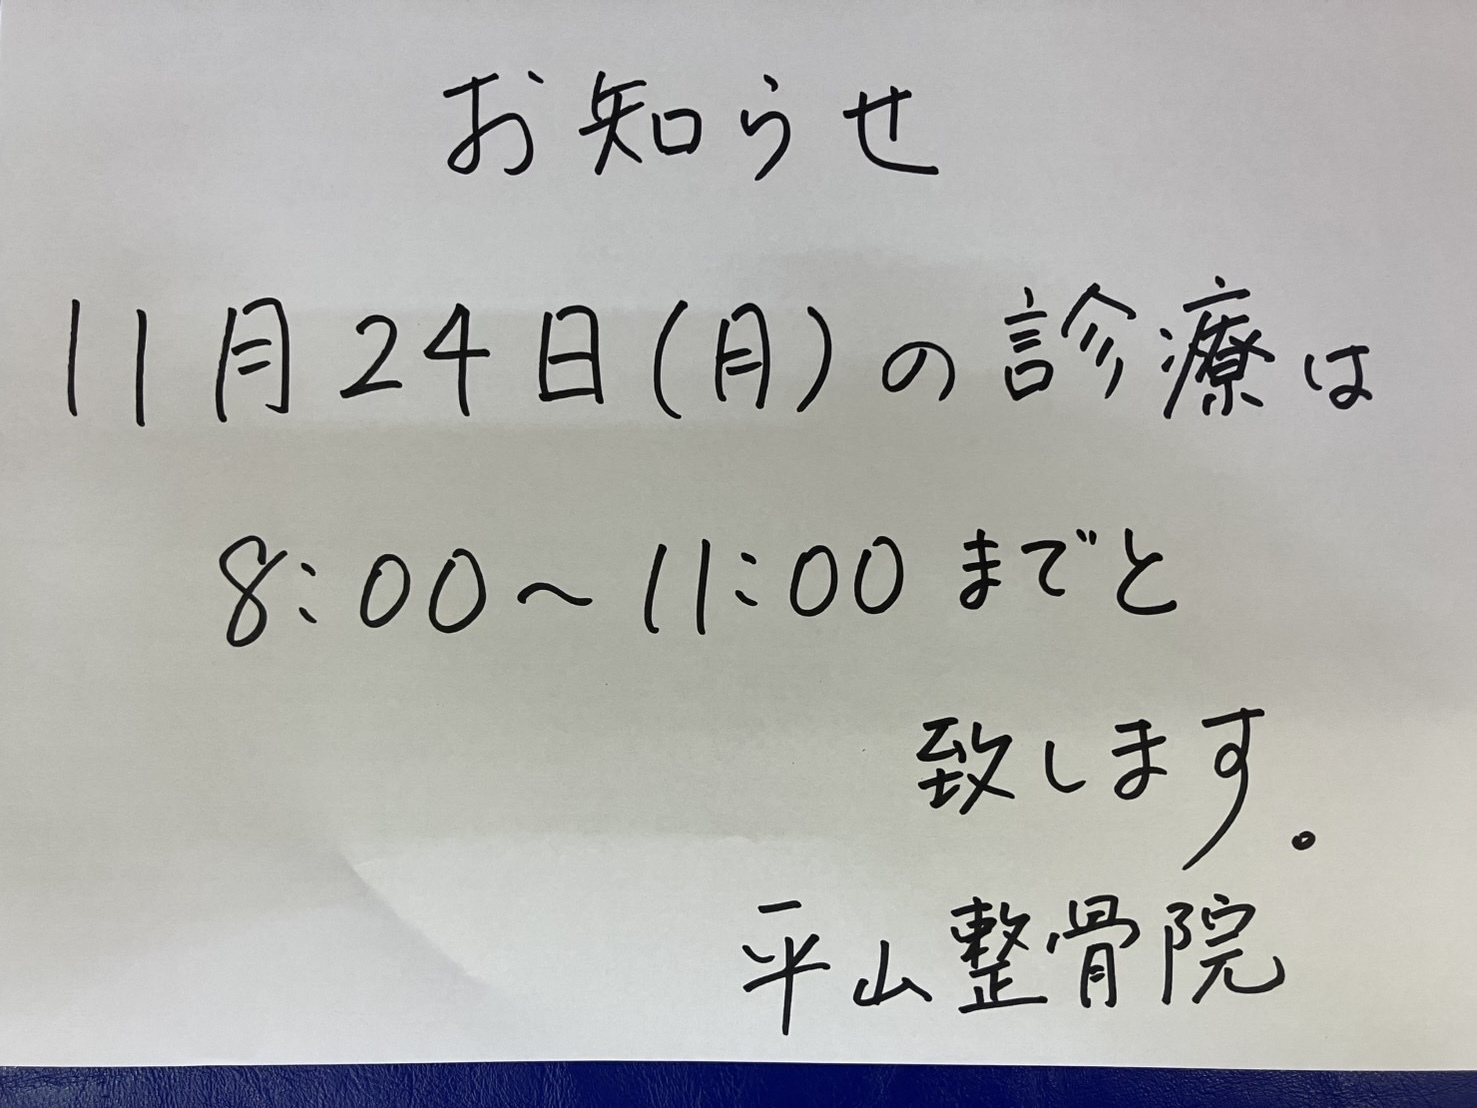 お知らせ
11月24日(月)の診療は
8:00～11:00までと
致します。
平山整骨院